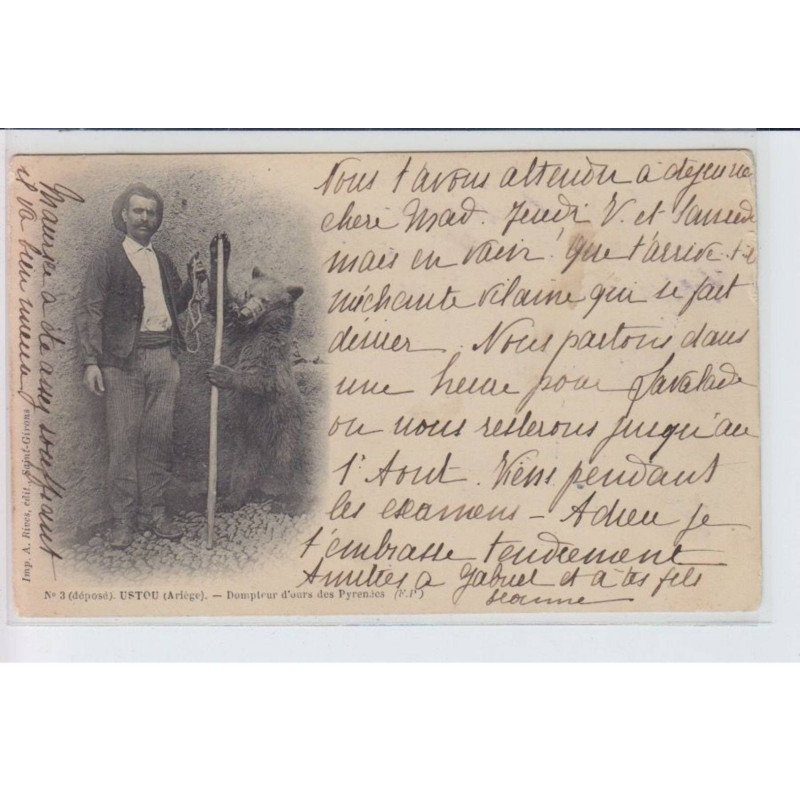 Nous t'avons attendu à dejeuner
chère Mad. Jeudi V. et Samedi
mais en vain! que t'arrive t'il
méchante vilaine qui se fait
desirer. Nous partons dans
une heure pour
ou nous resterons jusqu'au
1' Aout. Viens pendant
les examens - Adieu je
t'embrasse tendrement
Amitiés à Gabriel et à tes fils
Jeanne
Maurice a été assez souffrant
il va bien
Imp. A. Rives, édit., Saint-Girons
No 3 (déposé). USTOU (Ariège). — Dompteur d'ours des Pyrenées (F.P.)